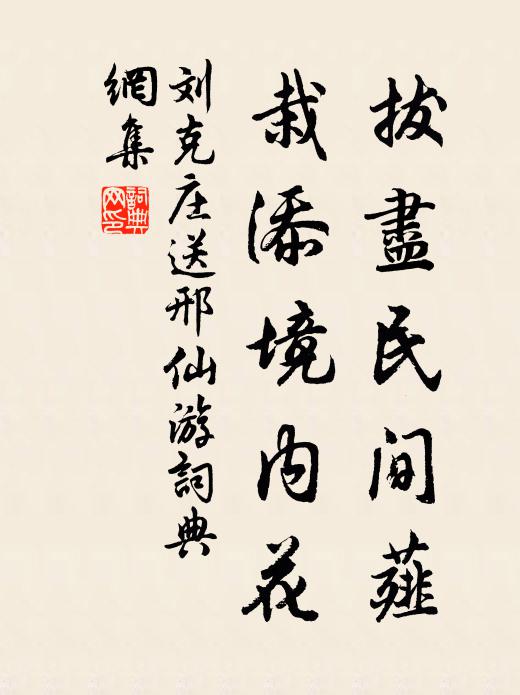 拔盡民间薤
栽添境内花
刘克庄送邢仙游詞典
網集
詞典
网印